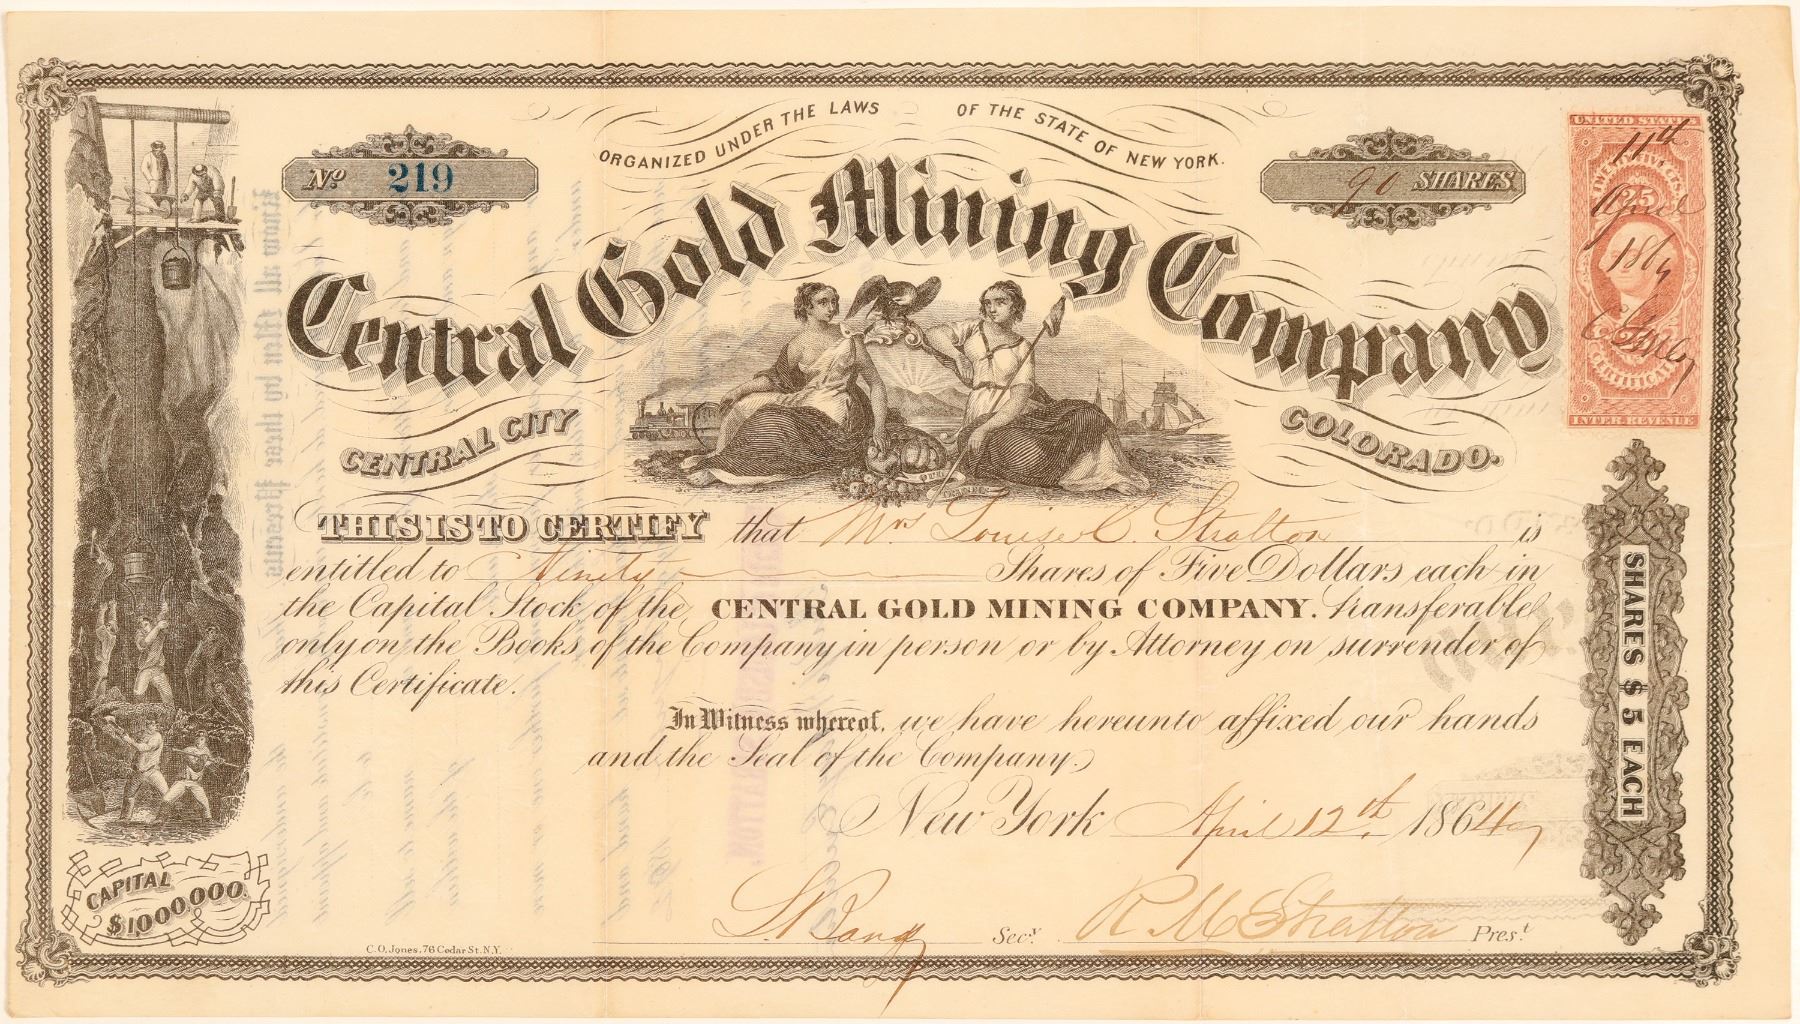 ORGANIZED UNDER THE LAWS OF THE STATE OF NEW YORK.
No 219
90 SHARES
Central Gold Mining Company
CENTRAL CITY COLORADO.
UNITED STATES
25
CERTIFICATE
INTER REVENUE
11th
April
186
THIS IS TO CERTIFY that Mrs Louise C. Stratton is
entitled to Ninety Shares of Five Dollars each in
the Capital Stock of the CENTRAL GOLD MINING COMPANY. transferable
only on the Books of the Company in person or by Attorney on surrender of
this Certificate.
In Witness whereof, we have hereunto affixed our hands
and the Seal of the Company.
New York April 12th, 1864
SHARES $5 EACH
CAPITAL
$1000,000.
Secy. R. M. Stratton Prest
C.O. Jones, 76 Cedar St. N.Y.